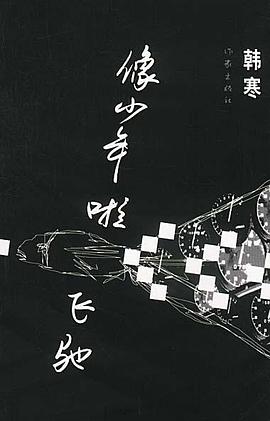 韩寒
作家出版社
像少年啦飞驰